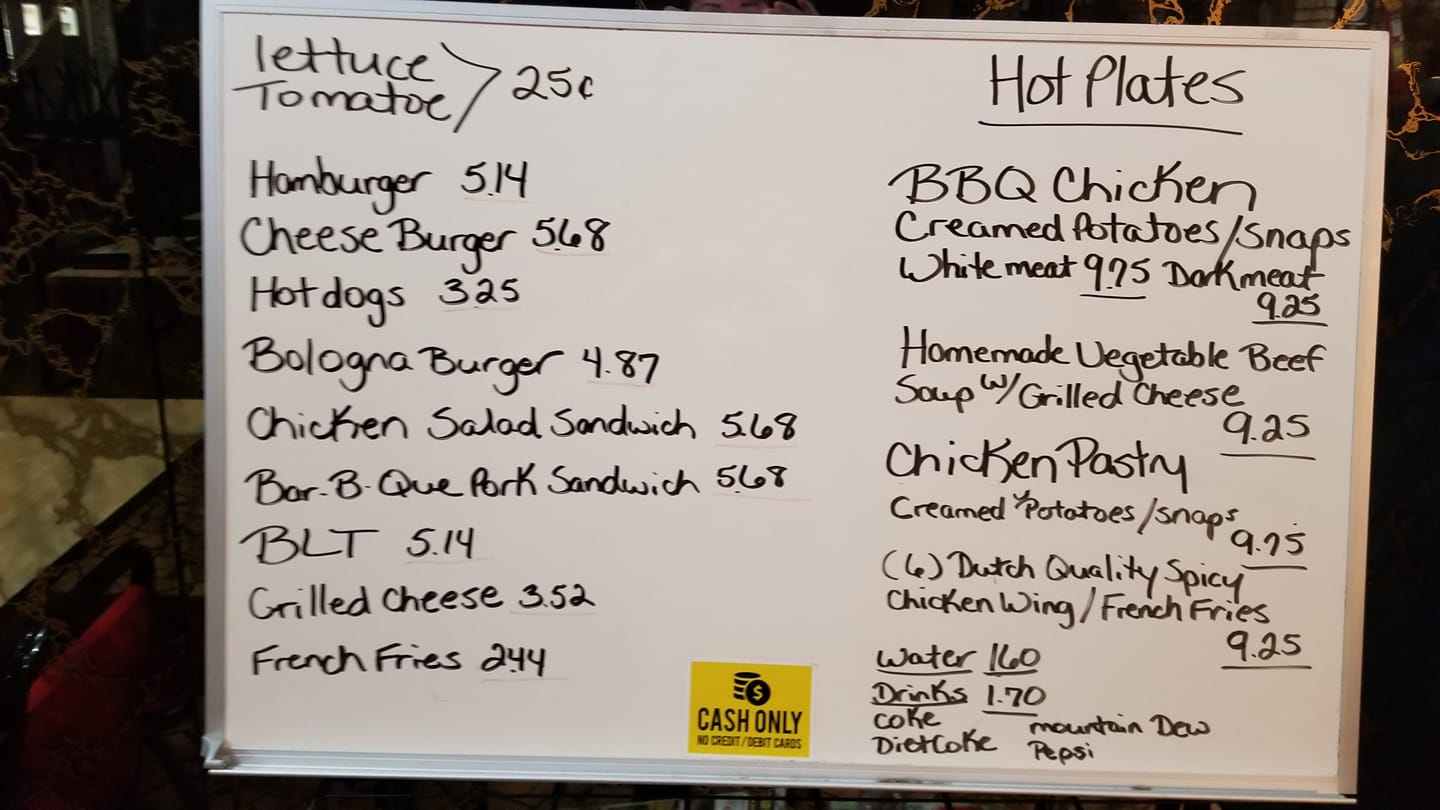 lettuce
Tomatoe > 25¢
Hamburger 5.14
Cheese Burger 5.68
Hot dogs 3.25
Bologna Burger 4.87
Chicken Salad Sandwich 5.68
Bar-B-Que Pork Sandwich 5.68
BLT 5.14
Grilled Cheese 3.52
French Fries 2.44
CASH ONLY
NO CREDIT / DEBIT CARDS
Hot Plates
BBQ Chicken
Creamed Potatoes/snaps
White meat 9.75 Dark meat
9.25
Homemade Vegetable Beef
Soup w/Grilled Cheese
9.25
Chicken Pastry
Creamed Potatoes/snaps
9.75
(6) Dutch Quality Spicy
Chicken Wing/French Fries
9.25
Water 1.60
Drinks 1.70
Coke mountain Dew
Diet Coke Pepsi